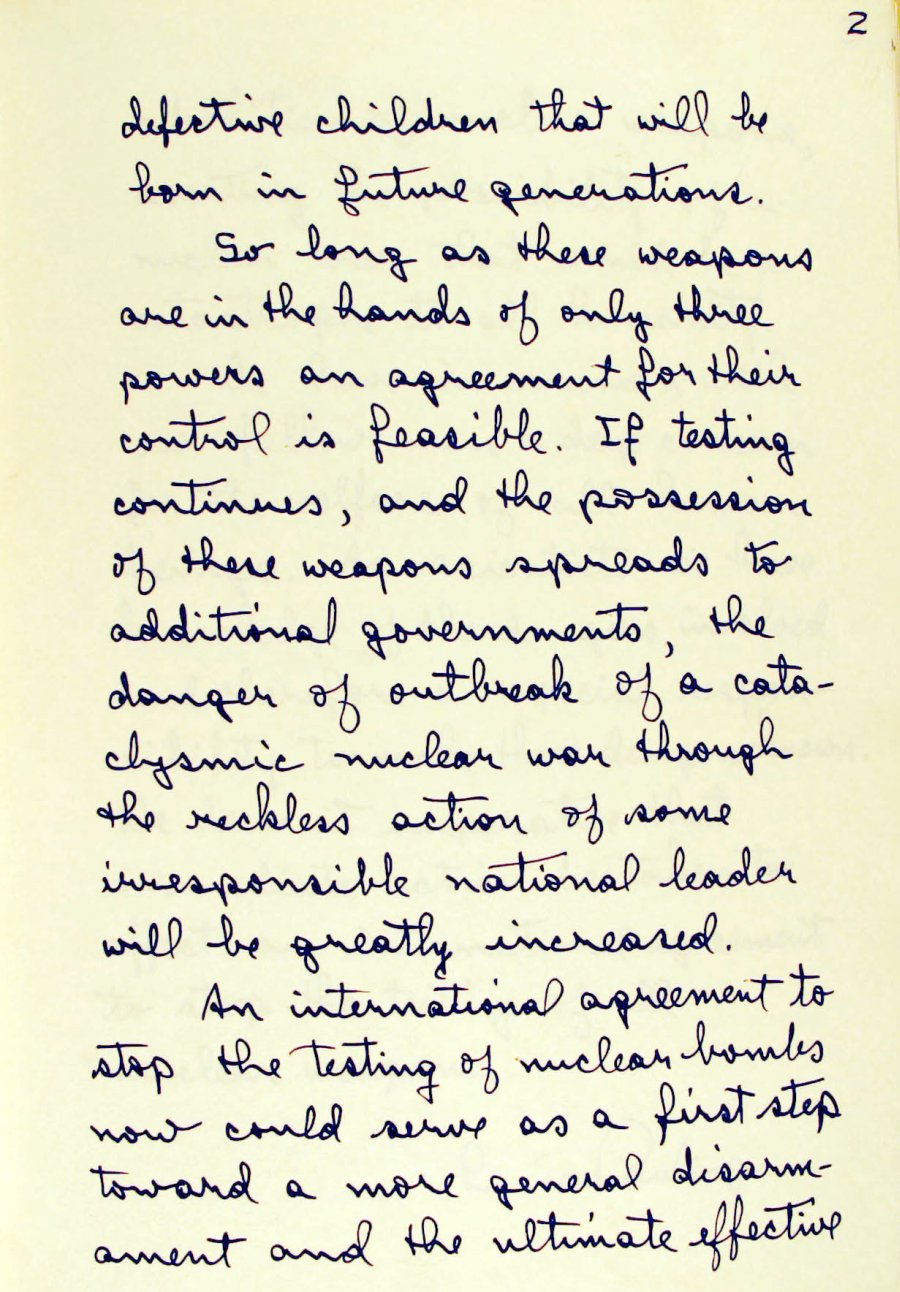 2
defective children that will be
born in future generations.
So long as these weapons
are in the hands of only three
powers an agreement for their
control is feasible. If testing
continues, and the possession
of these weapons spreads to
additional governments, the
danger of outbreak of a cata-
clysmic nuclear war through
the reckless action of some
irresponsible national leader
will be greatly increased.
An international agreement to
stop the testing of nuclear bombs
now could serve as a first step
toward a more general disarm-
ament and the ultimate effective